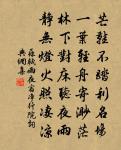 芒鞋不踏利名場
一葉輕舟寄渺茫
林下對床聽夜雨
靜無燈火照淒涼
蘇軾雨夜宿淨行院詞
與網集